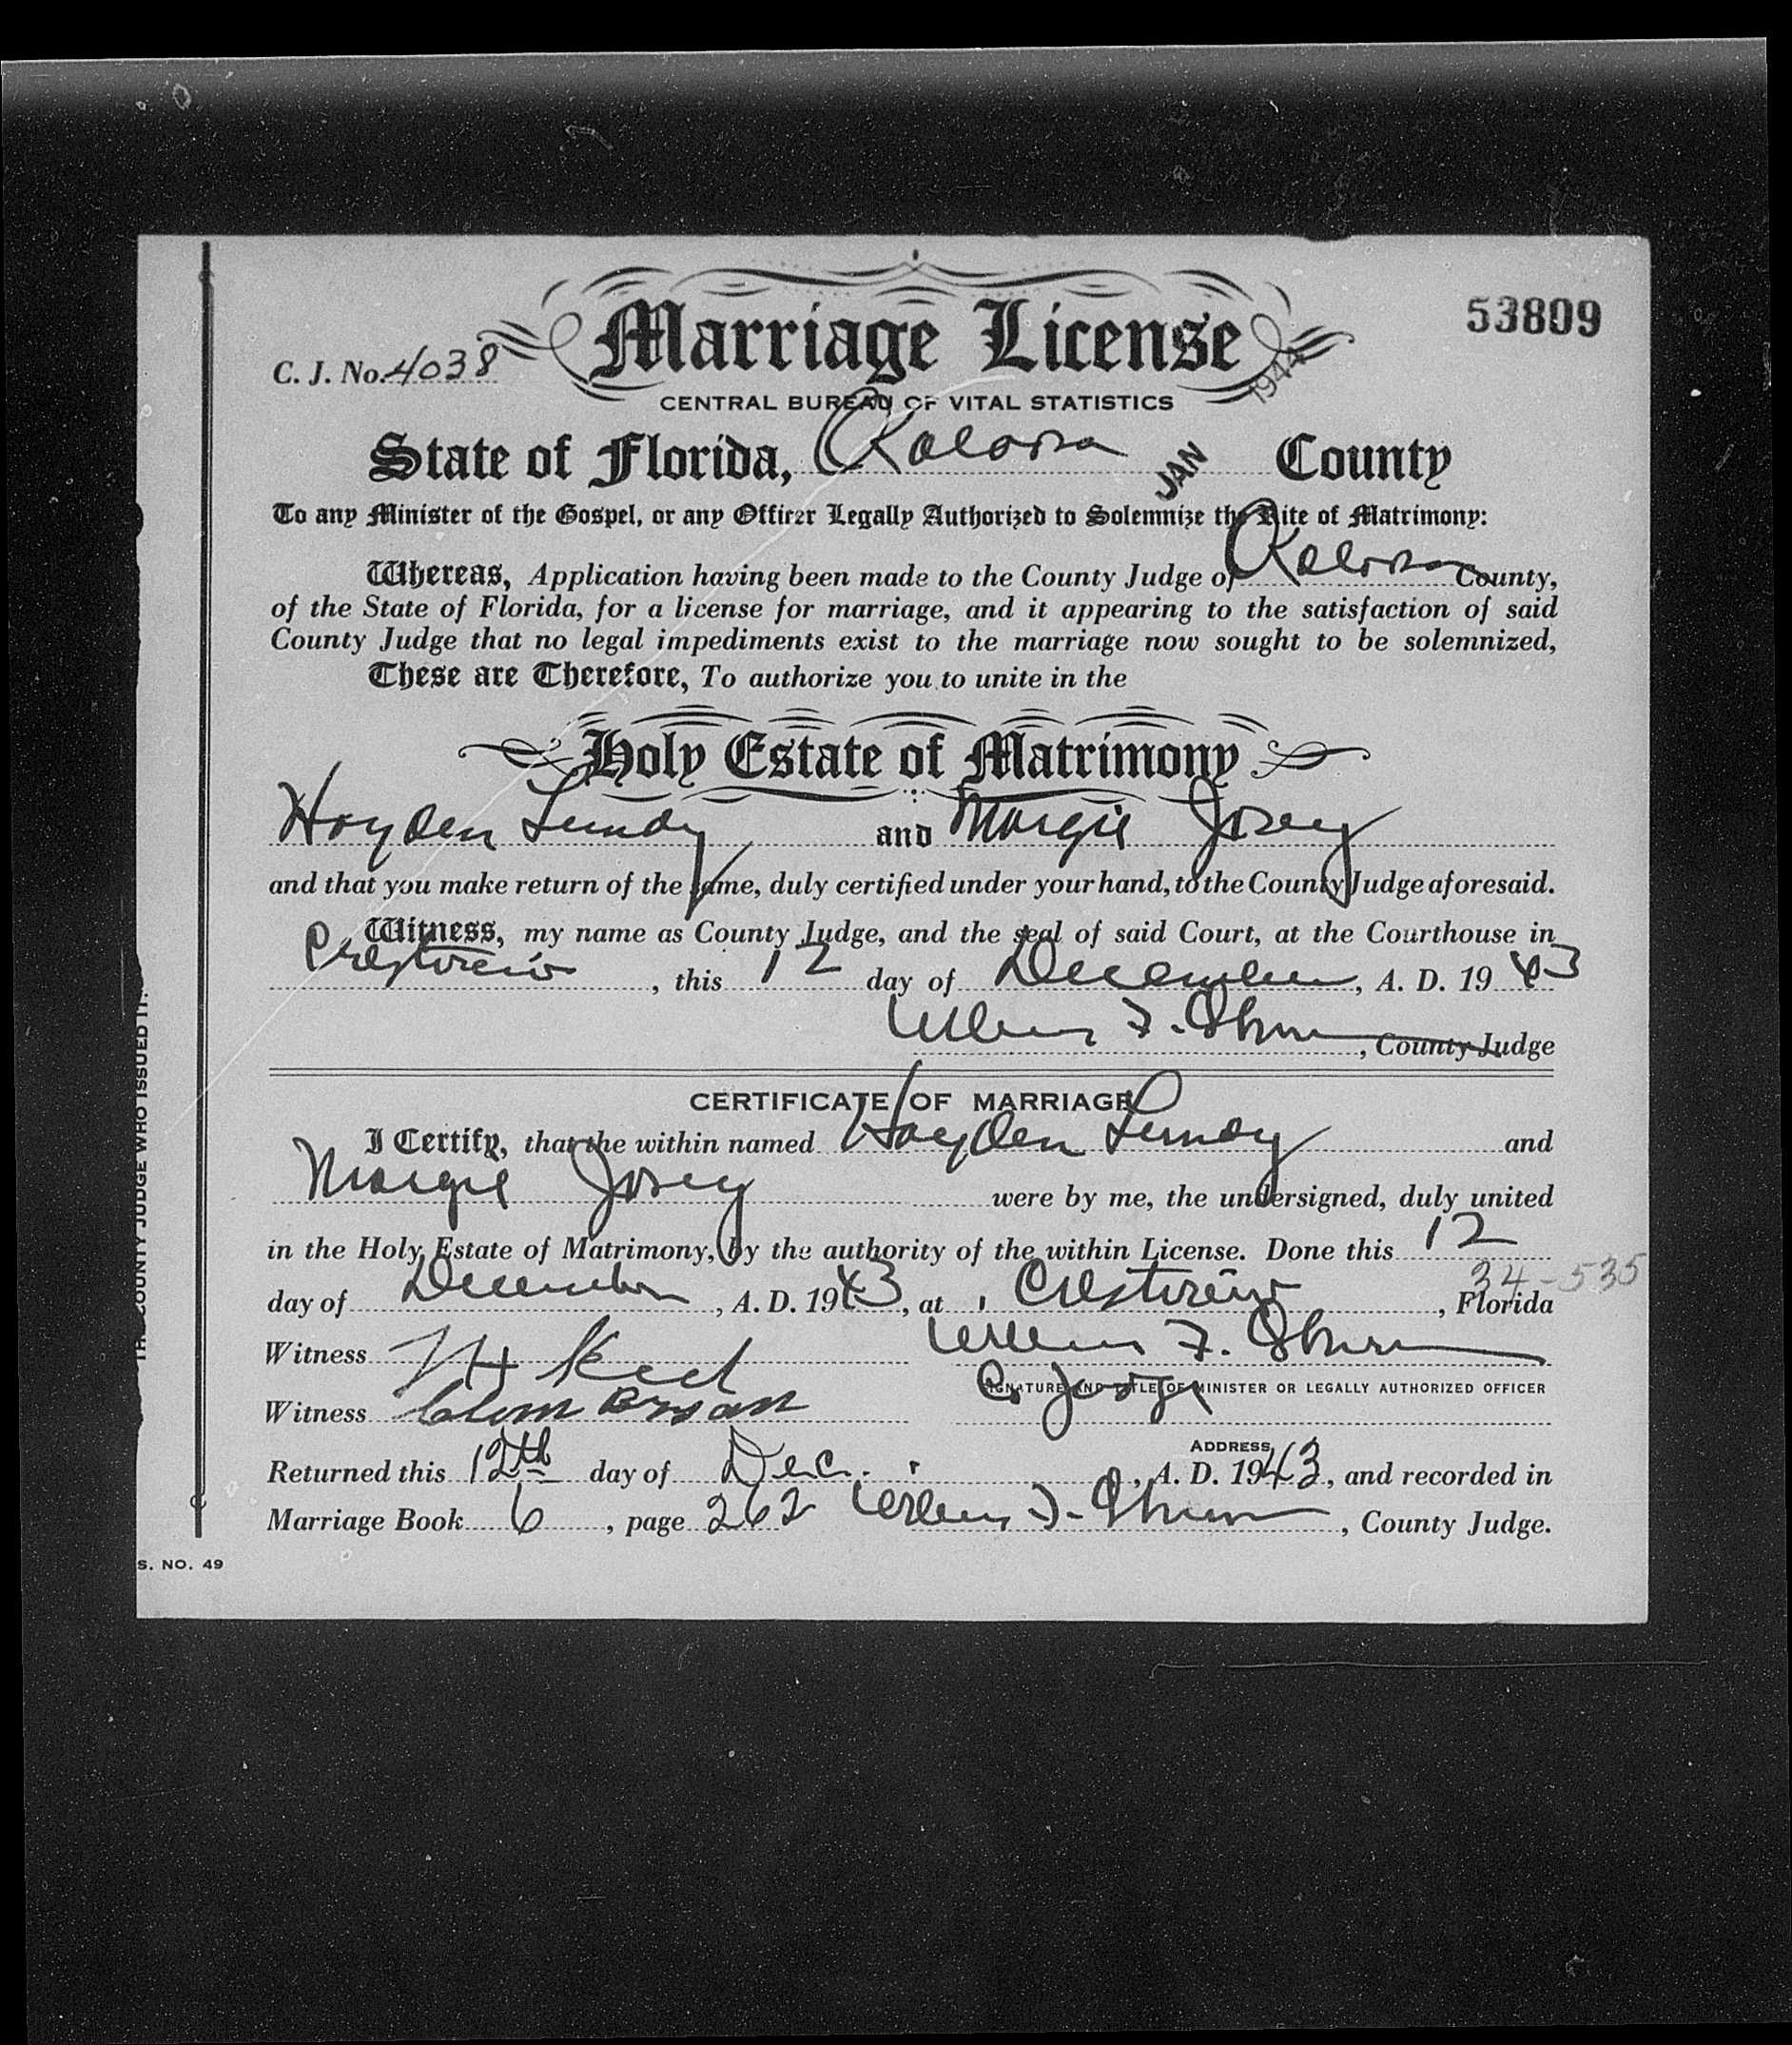 53809
Marriage License
C. J. No. 4038
1944
CENTRAL BUREAU OF VITAL STATISTICS
State of Florida, Okaloosa County
JAN
To any Minister of the Gospel, or any Officer Legally Authorized to Solemnize the Rite of Matrimony:
Whereas, Application having been made to the County Judge of Okaloosa County,
of the State of Florida, for a license for marriage, and it appearing to the satisfaction of said
County Judge that no legal impediments exist to the marriage now sought to be solemnized,
These are Therefore, To authorize you to unite in the
Holy Estate of Matrimony
Hayden Lundy and Margie Josey
and that you make return of the same, duly certified under your hand, to the County Judge aforesaid.
Witness, my name as County Judge, and the seal of said Court, at the Courthouse in
Crestview, this 12 day of December, A. D. 1943
F. County Judge
CERTIFICATE OF MARRIAGE
I Certify, that the within named Hayden Lundy and
Margie Josey were by me, the undersigned, duly united
in the Holy Estate of Matrimony, by the authority of the within License. Done this 12
34-535
day of December, A. D. 1943, at Crestview, Florida
Witness F.
SIGNATURE AND TITLE OF MINISTER OR LEGALLY AUTHORIZED OFFICER
Co Judge
Witness
ADDRESS
Returned this 12th day of Dec., A. D. 1943, and recorded in
Marriage Book 6, page 262 F. County Judge.
THE COUNTY JUDGE WHO ISSUED IT.
S. NO. 49